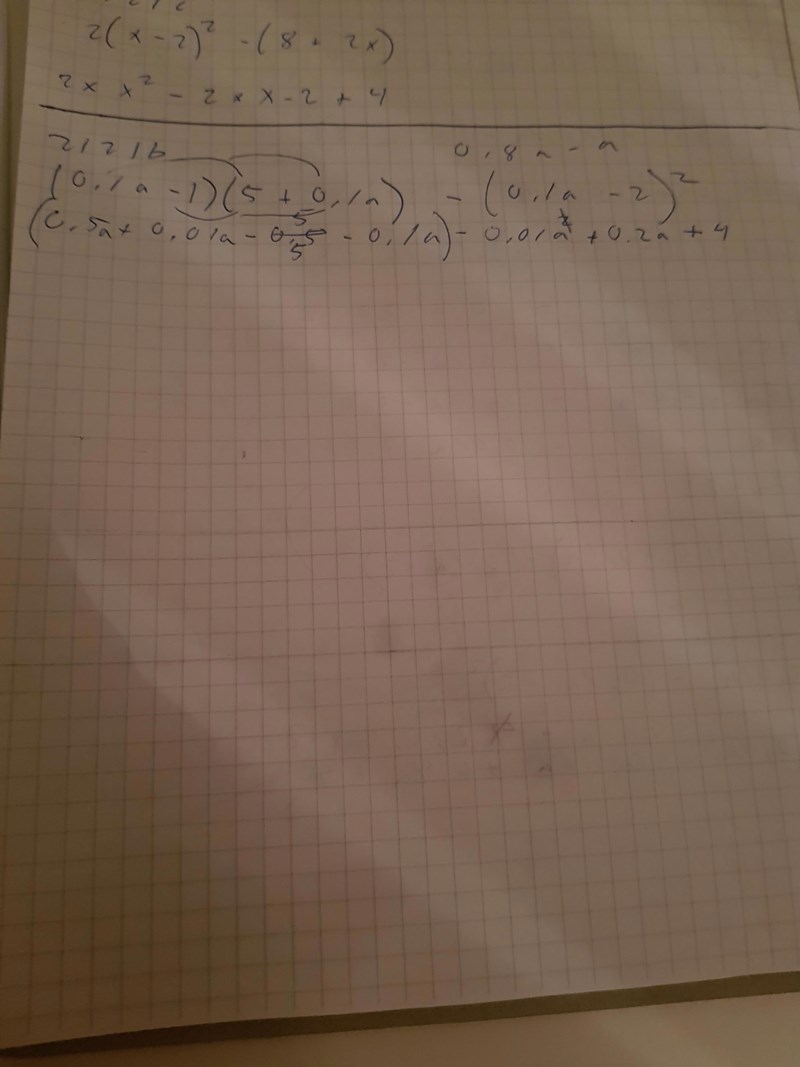 2(x-2)² - (8 + 2x)
2x x² - 2 x x - 2 + 4
2121b
0,8a - a
(0,1a - 1)(5 + 0,1a) - (0,1a - 2)²
(0,5a + 0,01a - 5 - 0,1a) - 0,01a² + 0,2a + 4